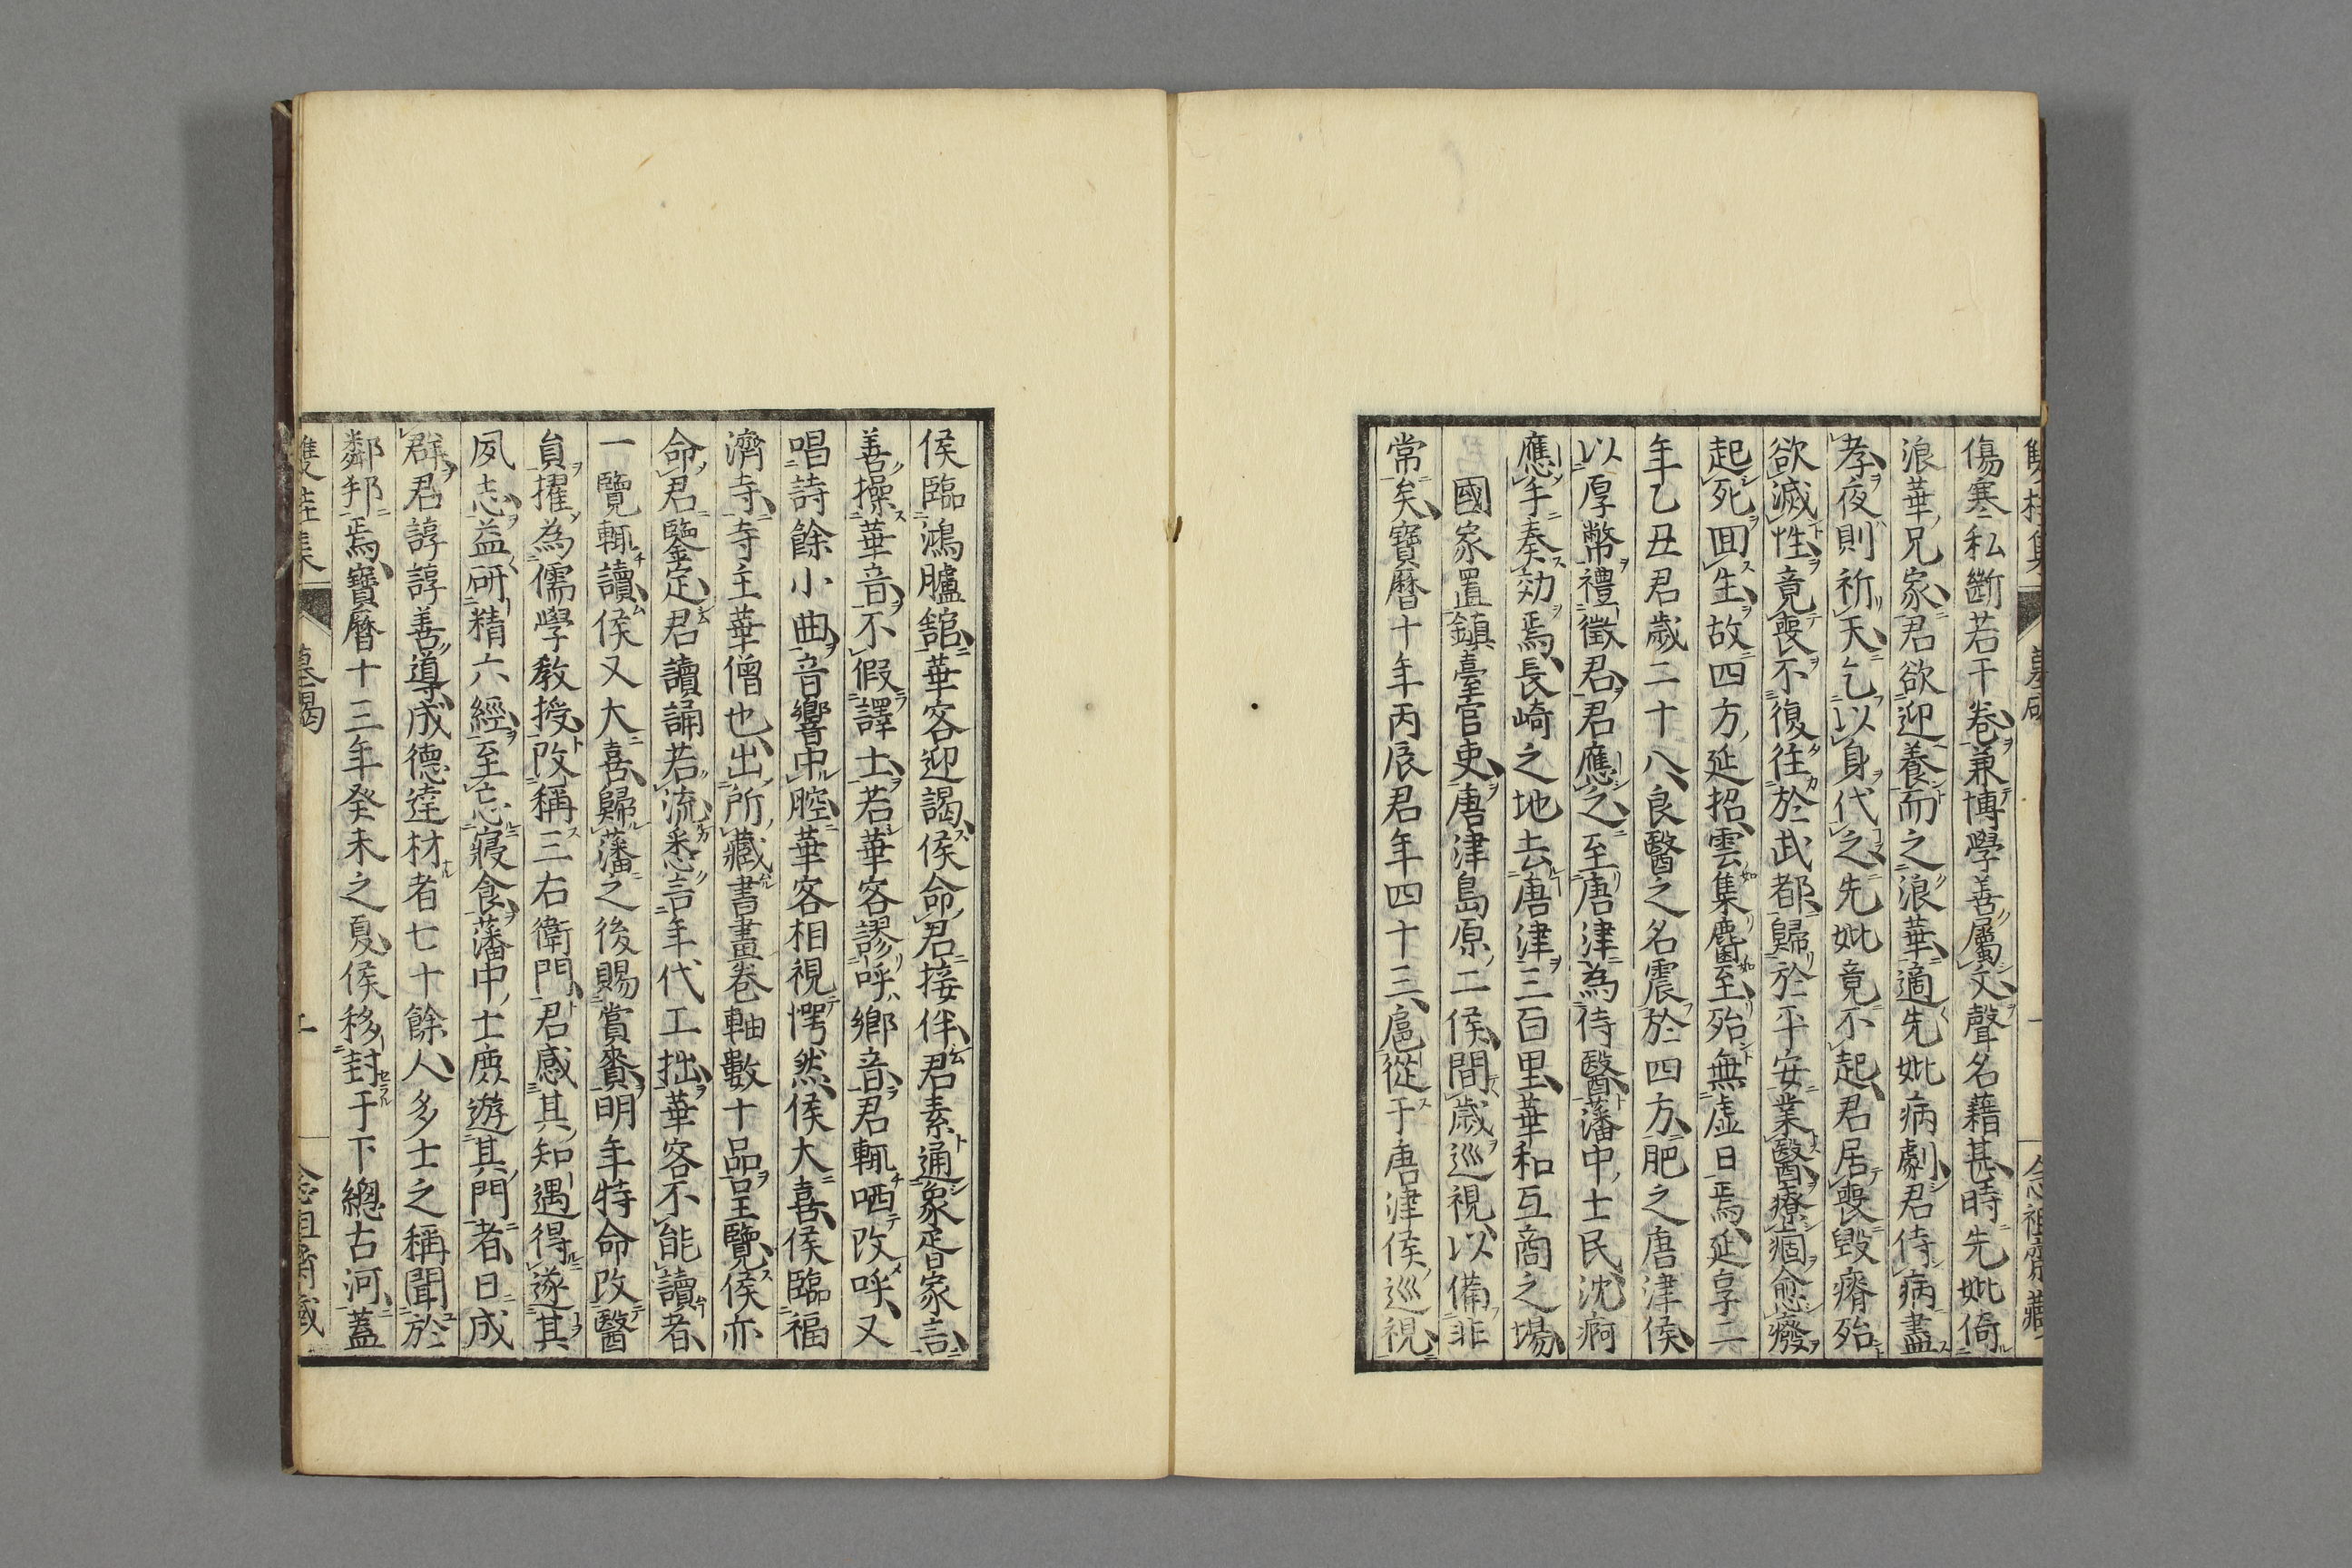 傷寒私斷若干卷兼博學善屬文聲名藉甚時先妣倚
浪華兄家君欲迎養而之浪華適先妣病劇君侍病盡
孝夜則祈天乞以身代之先妣竟不起君居喪毀瘠殆
欲滅性竟喪不復往於武都歸於平安業醫療痼愈癈
起死回生故四方延招雲集麕至殆無虛日焉延享二
年乙丑君歲二十八良醫之名震於四方肥之唐津侯
以厚幣禮徵君君應之至唐津為待醫藩中士民沈痾
應手奏効焉長崎之地去唐津三百里華和互商之場
國家置鎮臺官吏唐津島原二侯間歲巡視以備非
常矣寶曆十年丙辰君年四十三扈從于唐津侯巡視
侯臨鴻臚舘華客迎謁侯命君接伴君素通象胥家言
善操華音不假譯士若華客謬呼鄉音君輒哂改呼又
唱詩餘小曲音響中腔華客相視愕然侯大喜侯臨福
濟寺寺主華僧也出所藏書畫卷軸數十品呈覽侯亦
命君鑒定君讀誦若流悉言年代工拙華客不能讀者
一覽輒讀侯又大喜歸藩之後賜賞賚明年特命改醫
員擢為儒學教授改稱三右衛門君感其知遇得遂其
夙志益研精六經至忘寢食藩中士庶遊其門者日成
群君諄諄善導成德達材者七十餘人多士之稱聞於
鄰邦焉寶曆十三年癸未之夏侯移封于下總古河蓋